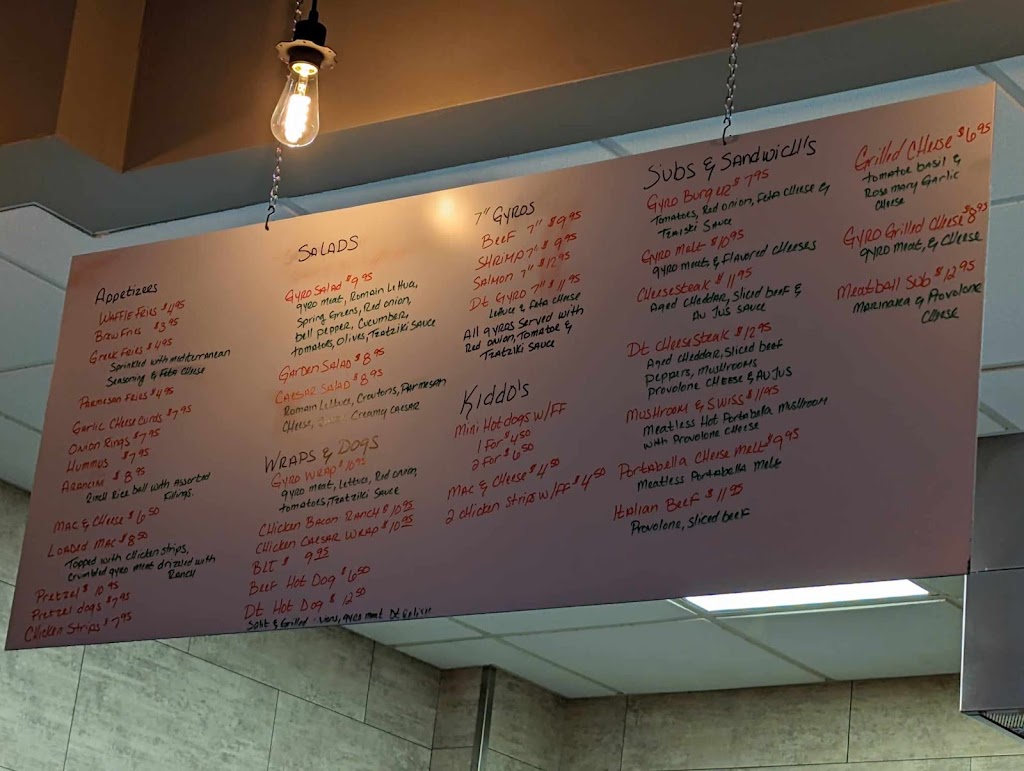 Appetizers
Waffle Fries $4.95
Brew Fries $3.95
Greek Fries $4.95
Sprinkled with mediterranean
Seasoning & Feta Cheese
Parmesan Fries $4.95
Garlic Cheese Curds $7.95
Onion Rings $7.95
Hummus $7.95
Arancini $8.95
Rice ball with Assorted
Fillings.
Mac & Cheese $6.50
Loaded Mac $8.50
Topped with chicken strips,
crumbled gyro meat drizzled with
Ranch
Pretzel $10.95
Pretzel dogs $7.95
Chicken Strips $7.95
Salads
Gyro Salad $9.95
gyro meat, Romain Lettuce,
Spring Greens, Red onion,
bell pepper, Cucumber,
tomatoes, olives, Tzatziki Sauce
Garden Salad $8.95
Caesar Salad $8.95
Romain Lettuce, Croutons, Parmesan
Cheese, Creamy Caesar
Wraps & Dogs
Gyro Wrap $10.95
gyro meat, Lettuce, Red onion,
tomatoes, Tzatziki Sauce
Chicken Bacon Ranch $10.95
Chicken Caesar Wrap $10.95
BLT $9.95
Beef Hot Dog $6.50
Dt Hot Dog $12.50
Split & Grilled gyro meat
7" Gyros
Beef 7" $9.95
Shrimp 7" $9.95
Salmon 7" $12.95
Dt Gyro 7" $11.95
Lettuce & Feta Cheese
All gyros Served with
Red onion, Tomatoe &
Tzatziki Sauce
Kiddo's
Mini Hotdogs w/FF
1 For $4.50
2 For $6.50
Mac & Cheese $4.50
2 chicken strips w/FF $4.50
Subs & Sandwich's
Gyro Burger $7.95
Tomatoes, Red onion, Feta Cheese &
Tzaiski Sauce
Gyro Melt $10.95
gyro meat & Flavored Cheeses
Cheesesteak $11.95
Aged Cheddar, Sliced beef &
Au Jus Sauce
Dt Cheesesteak $12.95
Aged Cheddar, Sliced beef
Peppers, Mushrooms
Provolone Cheese & Au Jus
Mushroom & Swiss $11.95
Meatless Hot Portabella Mushroom
with Provolone Cheese
Portabella Cheese Melt $9.95
Meatless Portabella Melt
Italian Beef $11.95
Provolone, Sliced beef
Grilled Cheese $6.95
tomatoe basil &
Rosemary Garlic
Cheese
Gyro Grilled Cheese $8.95
gyro meat, & Cheese
Meatball Sub $12.95
Marinara & Provolone
Cheese